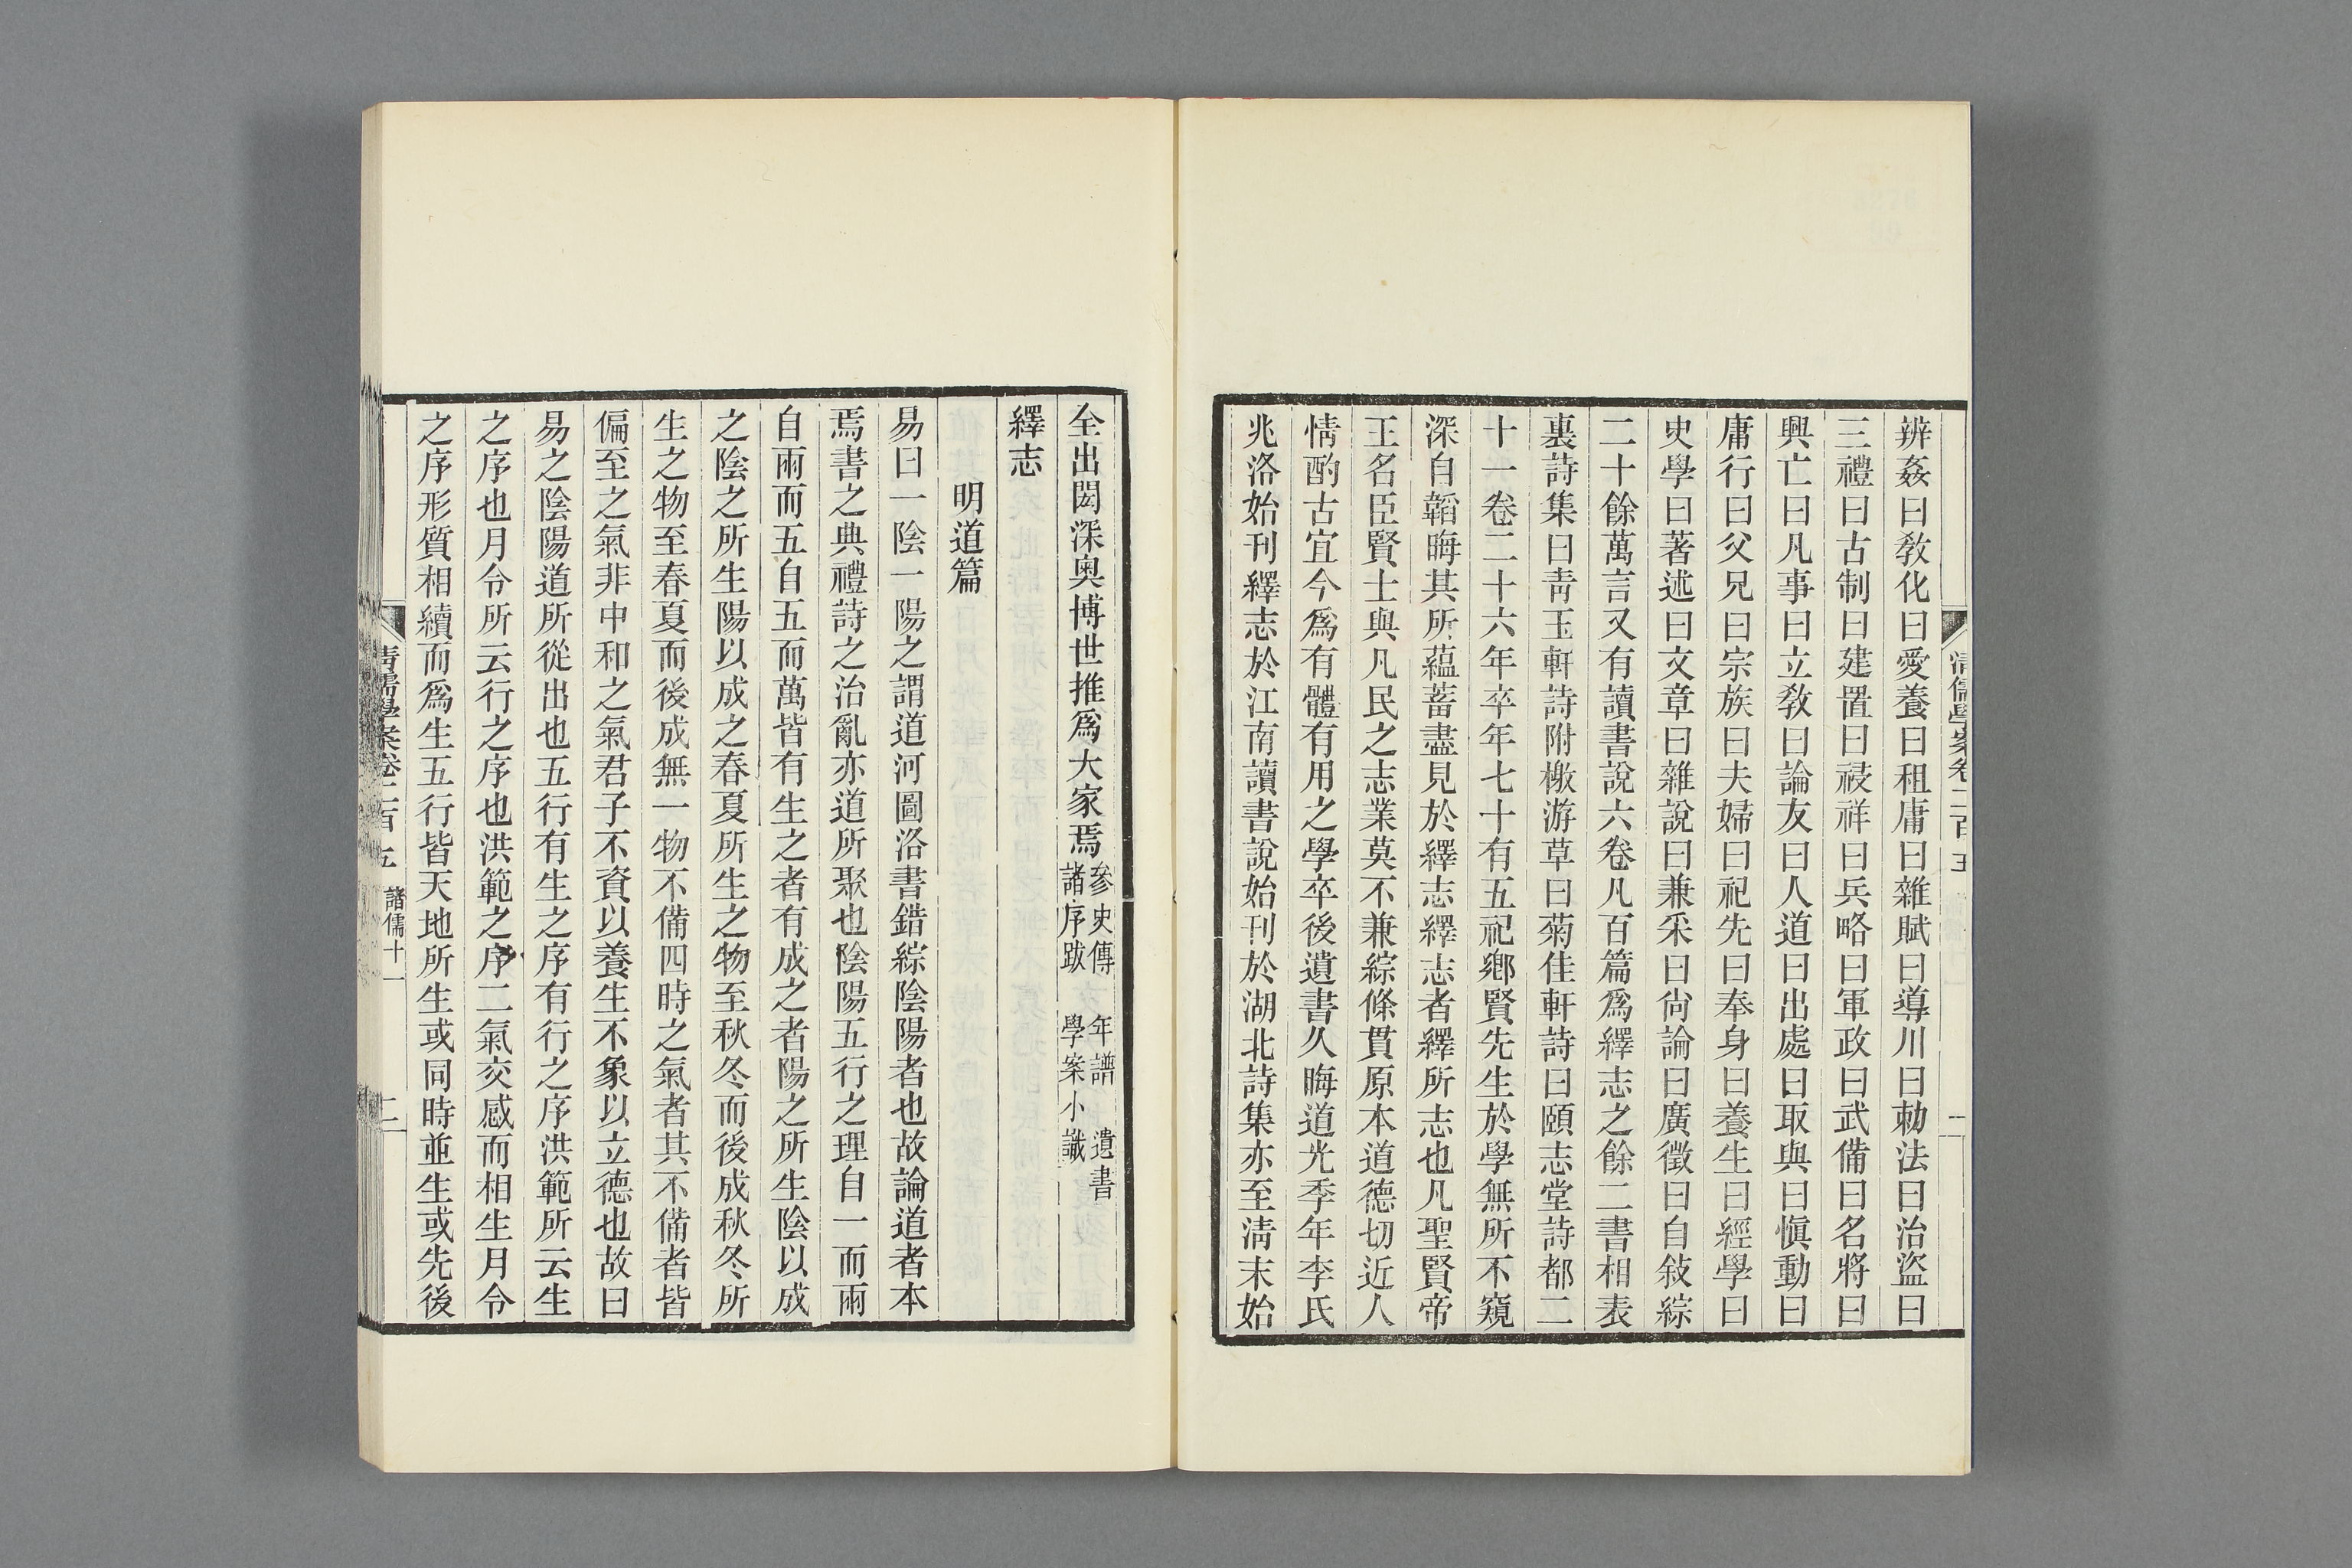 辨姦曰敎化曰愛養曰租庸曰雜賦曰導川曰勅法曰治盜曰
三禮曰古制曰建置曰祲祥曰兵略曰軍政曰武備曰名將曰
興亡曰凡事曰立敎曰論友曰人道曰出處曰取與曰愼動曰
庸行曰父兄曰宗族曰夫婦曰祀先曰奉身曰養生曰經學曰
史學曰著述曰文章曰雜說曰兼采曰尙論曰廣徵曰自敍綜
二十餘萬言又有讀書說六卷凡百篇爲繹志之餘二書相表
裏詩集曰靑玉軒詩附檄游草曰菊佳軒詩曰頤志堂詩都二
十一卷二十六年卒年七十有五祀鄕賢先生於學無所不窺
深自韜晦其所蘊蓄盡見於繹志繹志者繹所志也凡聖賢帝
王名臣賢士與凡民之志業莫不兼綜條貫原本道德切近人
情酌古宜今爲有體有用之學卒後遺書久晦道光季年李氏
兆洛始刊繹志於江南讀書說始刊於湖北詩集亦至淸末始
淸儒學案卷二百五
一
全出閎深奥博世推爲大家焉參史傳 年譜 遺書
諸序跋 學案小識
繹志
明道篇
易曰一陰一陽之謂道河圖洛書錯綜陰陽者也故論道者本
焉書之典禮詩之治亂亦道所聚也陰陽五行之理自一而兩
自兩而五自五而萬皆有生之者有成之者陽之所生陰以成
之陰之所生陽以成之春夏所生之物至秋冬而後成秋冬所
生之物至春夏而後成無一物不備四時之氣者其不備者皆
偏至之氣非中和之氣君子不資以養生不象以立德也故曰
易之陰陽道所從出也五行有生之序有行之序洪範所云生
之序也月令所云行之序也洪範之序二氣交感而相生月令
之序形質相續而爲生五行皆天地所生或同時並生或先後
淸儒學案卷二百五 諸儒十一
二